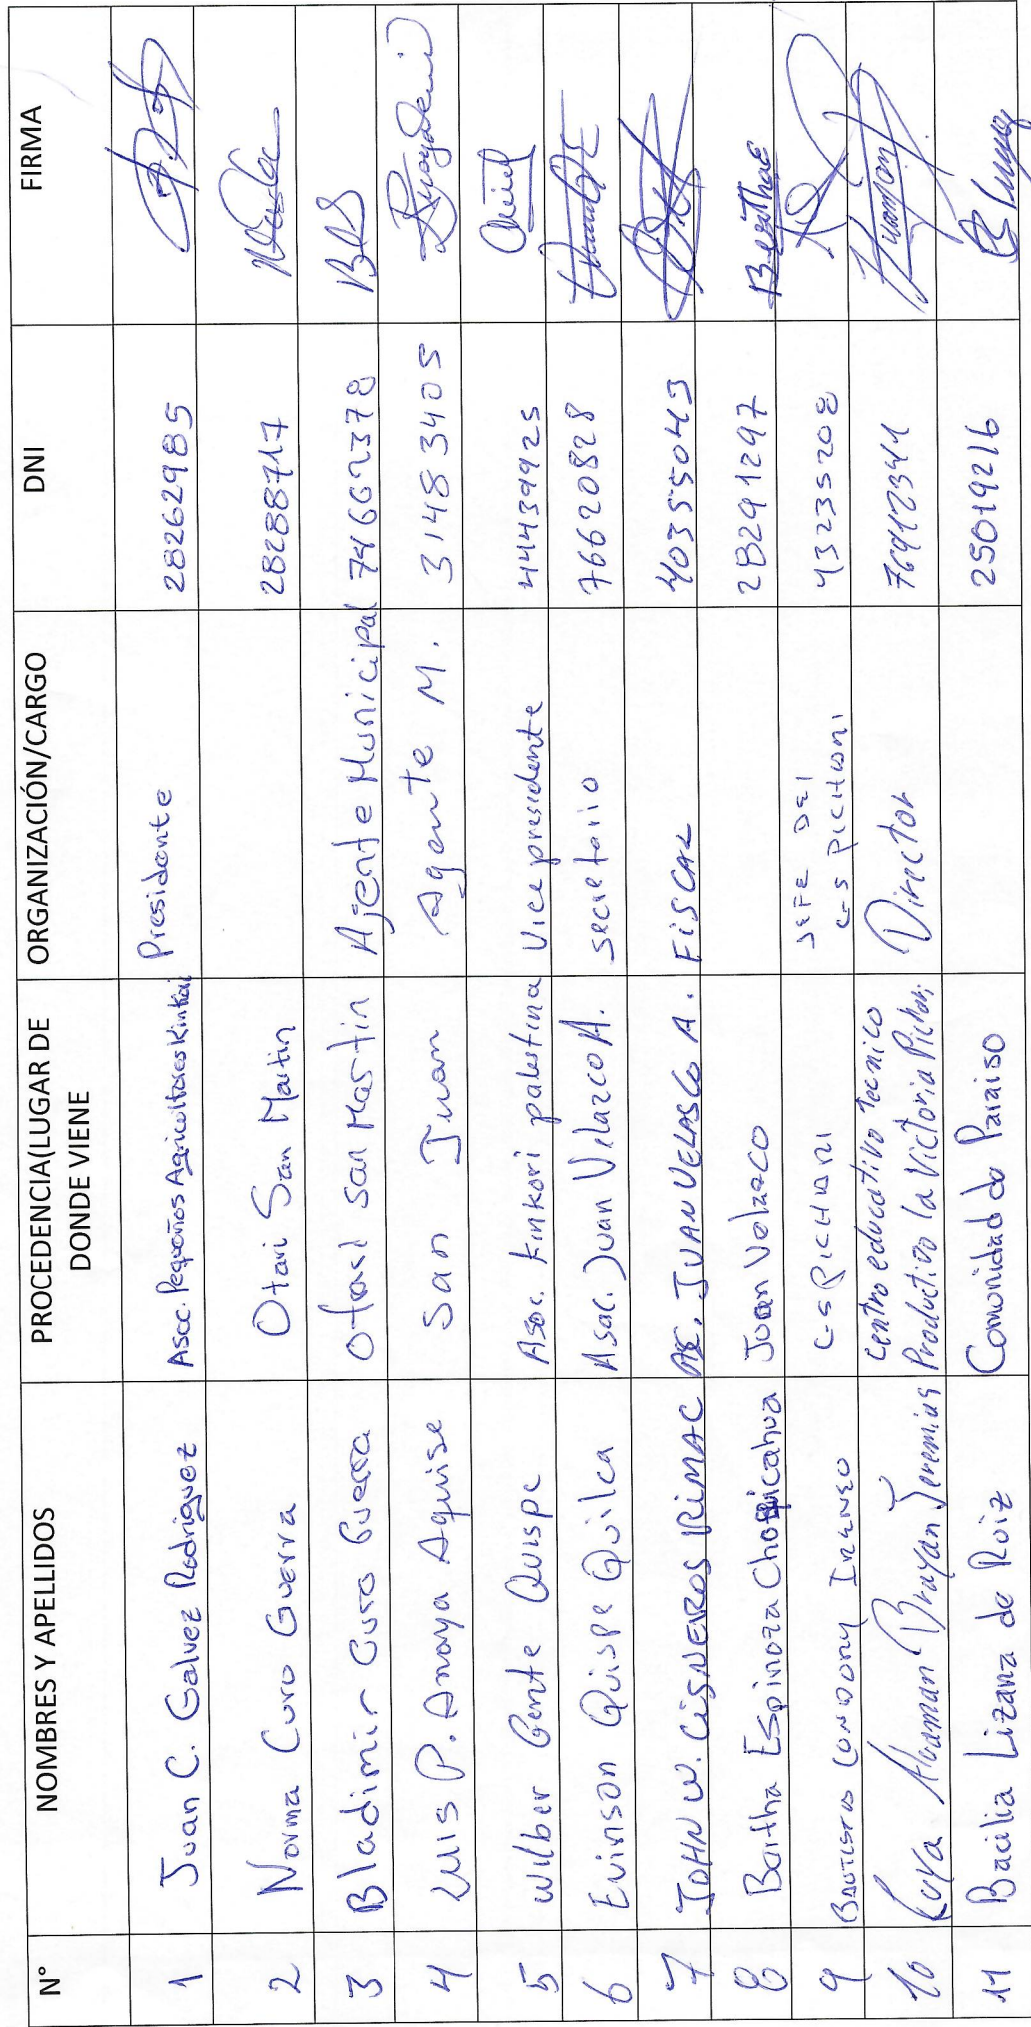 N° NOMBRES Y APELLIDOS PROCEDENCIA(LUGAR DE DONDE VIENE ORGANIZACIÓN/CARGO DNI FIRMA
1 Juan C. Galvez Rodriguez Asoc. Pequeños Agricultores Kinkori Presidente 28262985
2 Norma Curo Guerra Otari San Martin 28288717
3 Bladimir Curo Guerra Otari San Martin Ajente Municipal 74662378
4 Luis P. Amaya Aquise San Juan Agente M. 31483405
5 Wilber Gente Quispe Asoc. Kinkori palestina Vice presidente 44439925
6 Evinson Quispe Quilca Asac. Juan Velazco A. secretario 76620828
7 JOHN W. CISNEROS RIMAC AC. JUAN VELASCO A. FISCAL 40355043
8 Bertha Espinoza Juan Velazco 28291297 Berthae
9 Bautista Iraneo C-S PICHARI JEFE DEI C-S PICHARI 43235208
10 Huaman Brayan Jeremias Centro educativo Tecnico Productivo la Victoria Pichari Director 76912341
11 Bacilia Lizana de Ruiz Comunidad de Paraiso 25019216